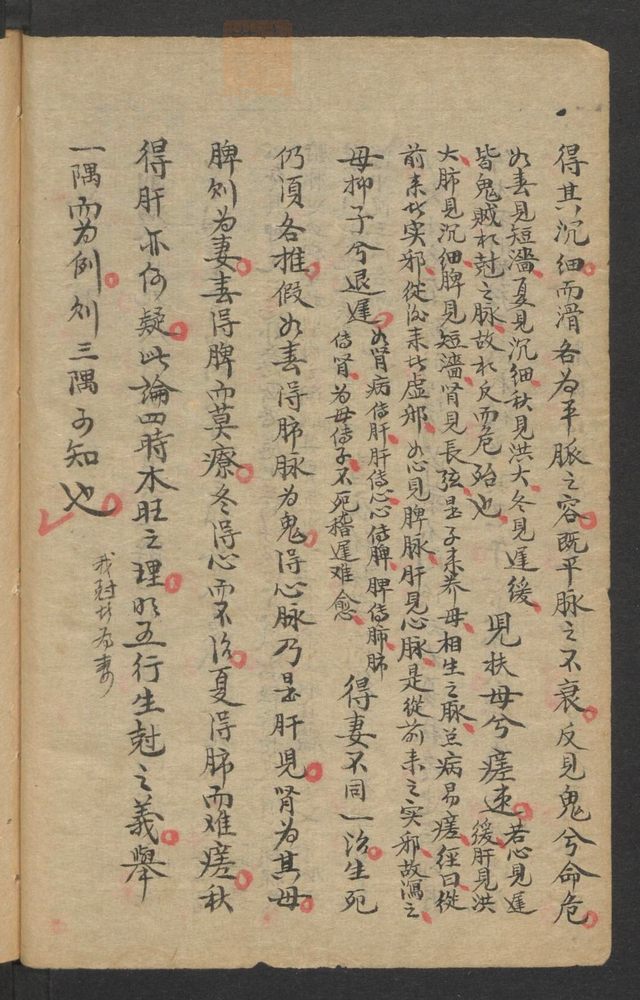 得其沉細而滑各為平脈之容既平脈之不衰反見鬼兮命危
如春見短濇夏見沉細秋見洪大冬見遲緩
皆鬼賊相尅之脉故相反而危殆也
児扶母兮瘥速
若心見遲
緩肝見洪
大肺見沉細脾見短濇腎見長弦是子来养母相生之脉並病易瘥経曰従
前来者实邪従後来者虚邪如心見脾脉肝見心脉是從前来之实邪故瀉之
母抑子兮退遲
如腎病傳肝肝傳心心傳脾脾傳肺肺
傳腎為母傳子不死稽遲难愈
得妻不同一治生死
仍須各推假如春得肺脉为鬼得心脉乃是肝児腎为其母
脾则为妻春得脾而莫療冬得心而不治夏得肺而难瘥秋
得肝亦何疑此論四時木旺之理明五行生尅之義舉
一隅而为例则三隅可知也
我尅者为妻